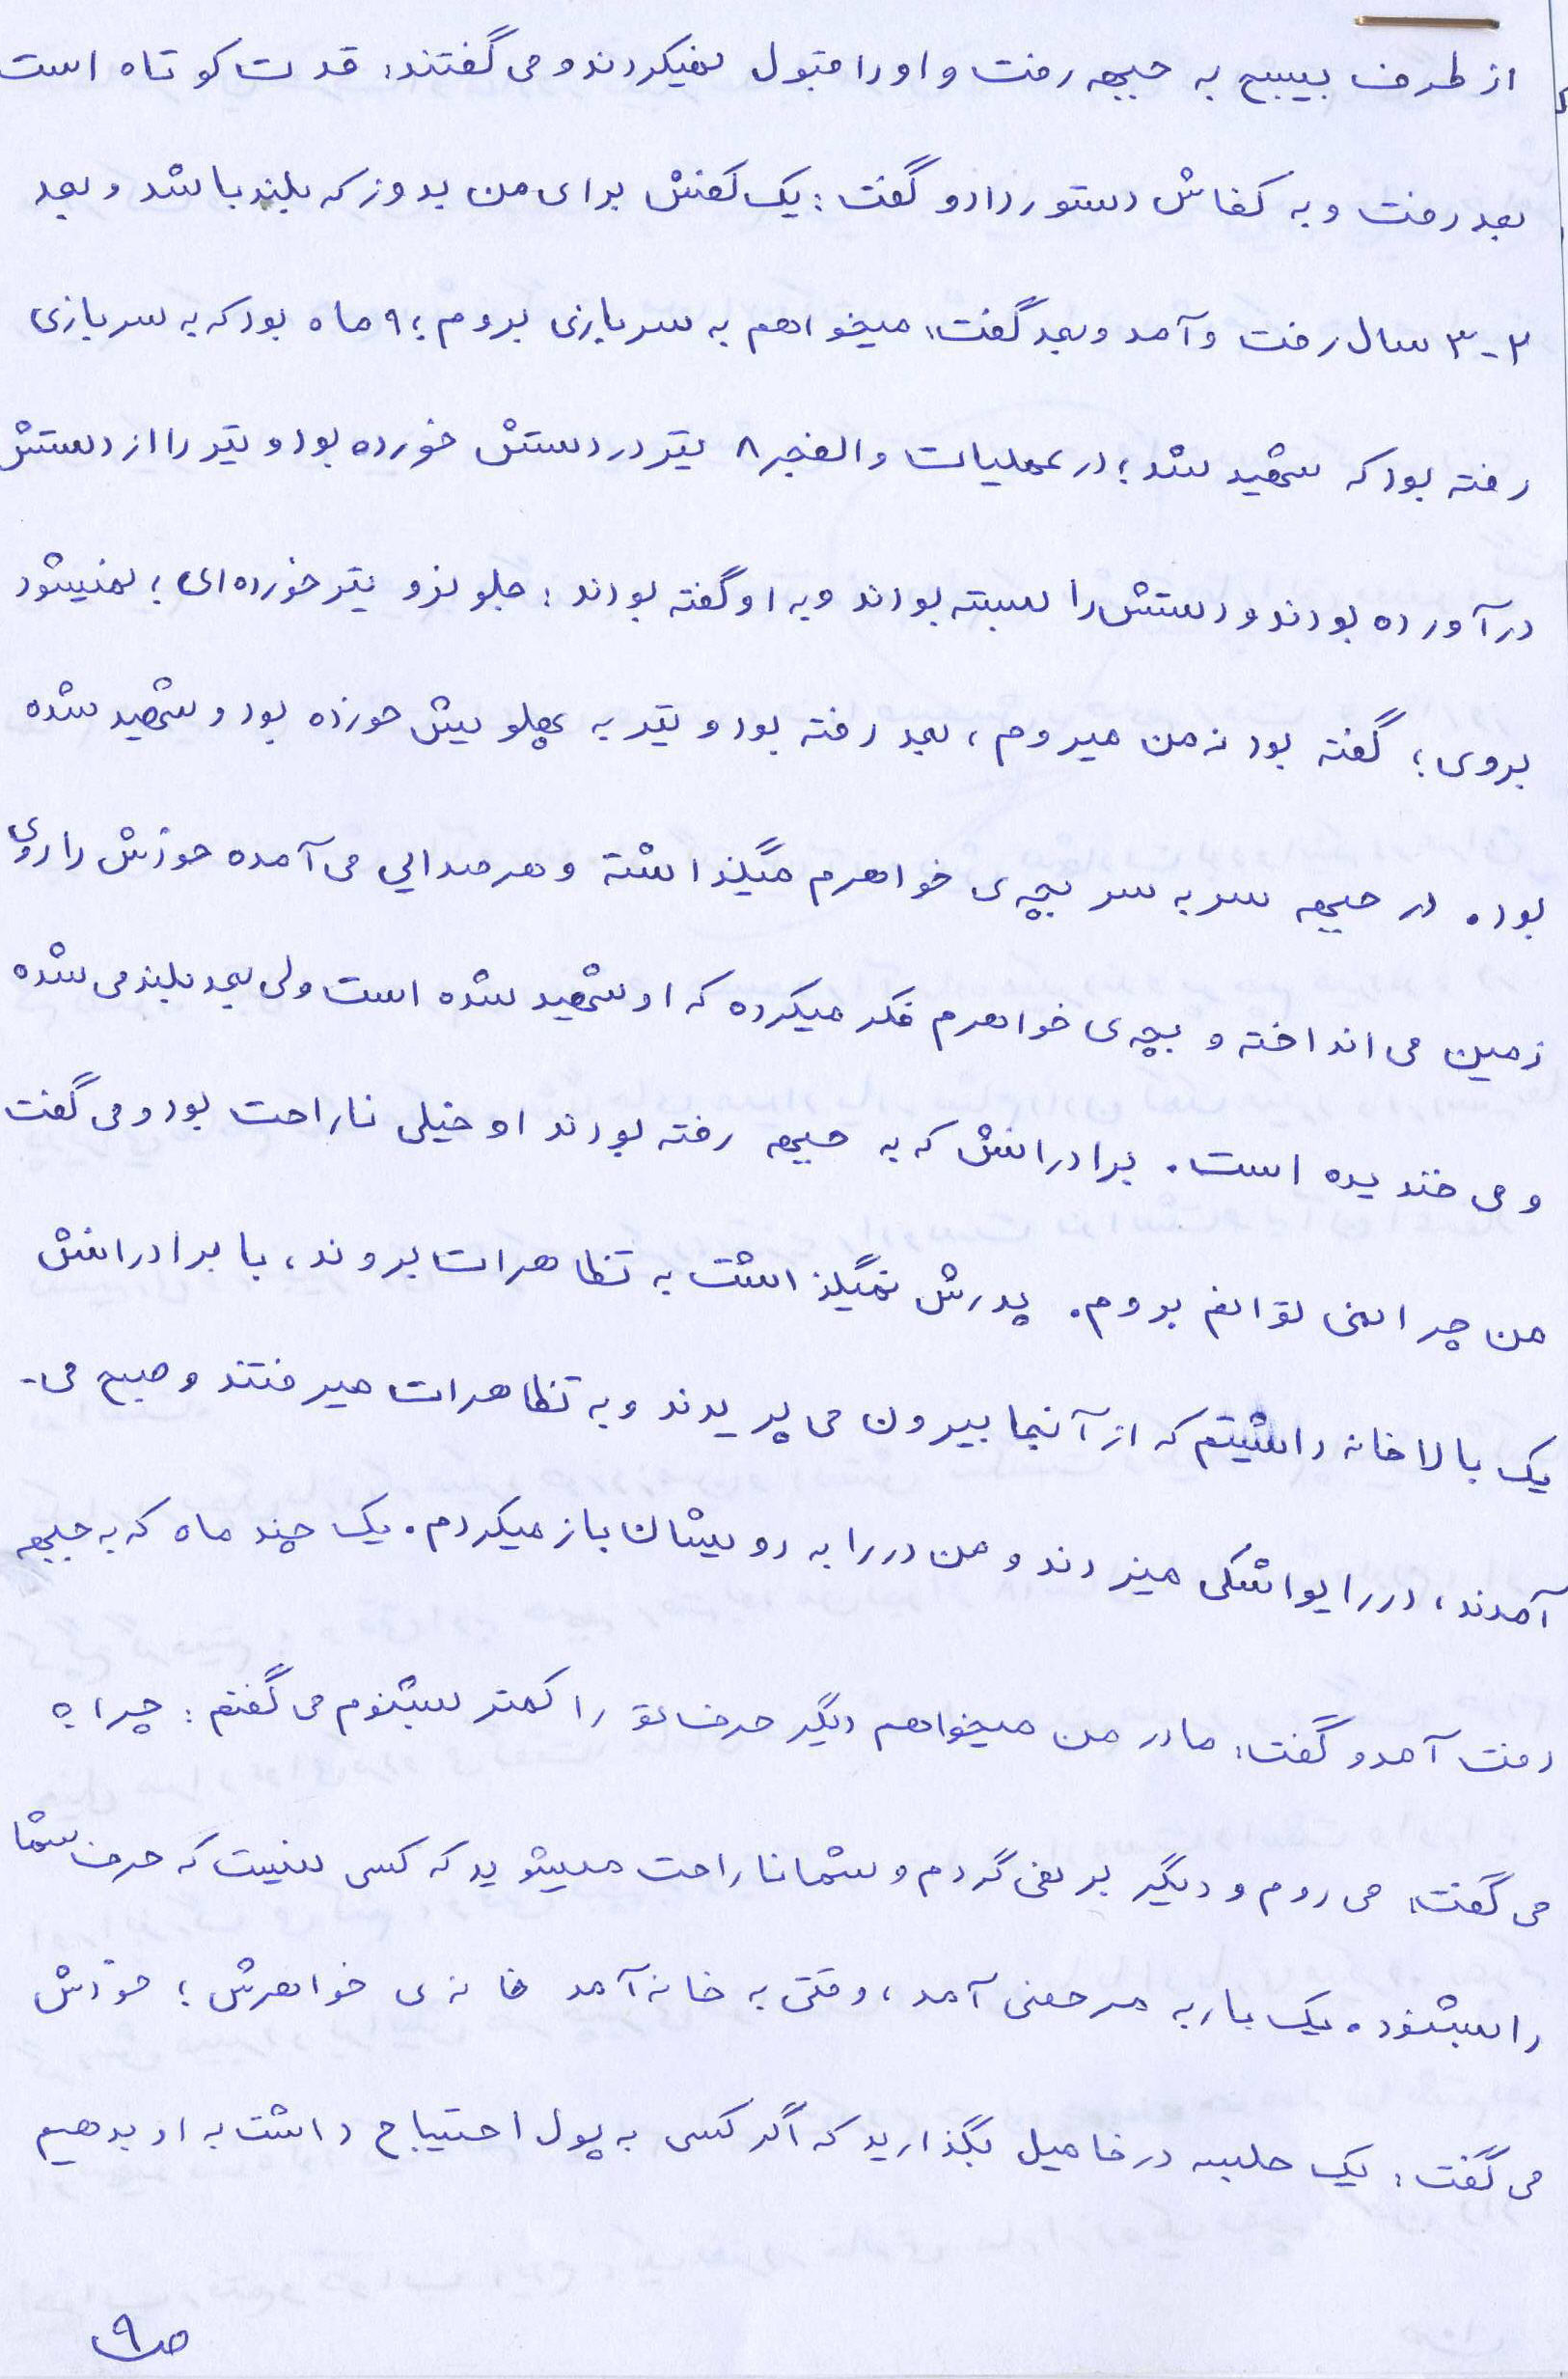 از طرف بسیج به جبهه رفت و او را قبول نمیکردند و می گفتند: قدت کوتاه است
بعد رفت و به کفاش دستور داد و گفت: یک کفش برای من بدوز که بلند باشد و بعد
۲-۳ سال رفت و آمد و بعد گفت: میخواهم به سربازی بروم؛ ۹ ماه بود که به سربازی
رفته بود که شهید شد؛ در عملیات والفجر ۸ تیر در دستش خورده بود و تیر را از دستش
درآورده بودند و دستش را بسته بودند و به او گفته بودند: جلو نرو تیر خورده ای؛ نمیشود
بروی؛ گفته بود نه من میروم، بعد رفته بود و تیر به پهلویش خورده بود و شهید شده
بود. در جبهه سر به سر بچه ی خواهرم میگذاشته و هر صدایی می آمده خودش را روی
زمین می انداخته و بچه ی خواهرم فکر میکرده که او شهید شده است ولی بعد بلند می شده
و می خندیده است. برادرانش که به جبهه رفته بودند او خیلی ناراحت بود و می گفت
من چرا نمی توانم بروم. پدرش نمیگذاشت به تظاهرات بروند، با برادرانش
یک بالاخانه داشتیم که از آنجا بیرون می پریدند و به تظاهرات میرفتند و صبح می-
آمدند، در را یواشکی میزدند و من در را به رویشان باز میکردم. یک چند ماه که به جبهه
رفت آمد و گفت: مادر من میخواهم دیگر حرفاتو را کمتر بشنوم می گفتم: چرا؟
می گفت: می روم و دیگر بر نمی گردم و شما ناراحت میشوید که کسی نیست که حرف شما
را بشنود. یک بار به مرخصی آمد، وقتی به خانه آمد خانه ی خواهرش؛ خودش
می گفت: یک جلسه در فامیل بگذارید که اگر کسی به پول احتیاج داشت به او بدهیم
ص۹